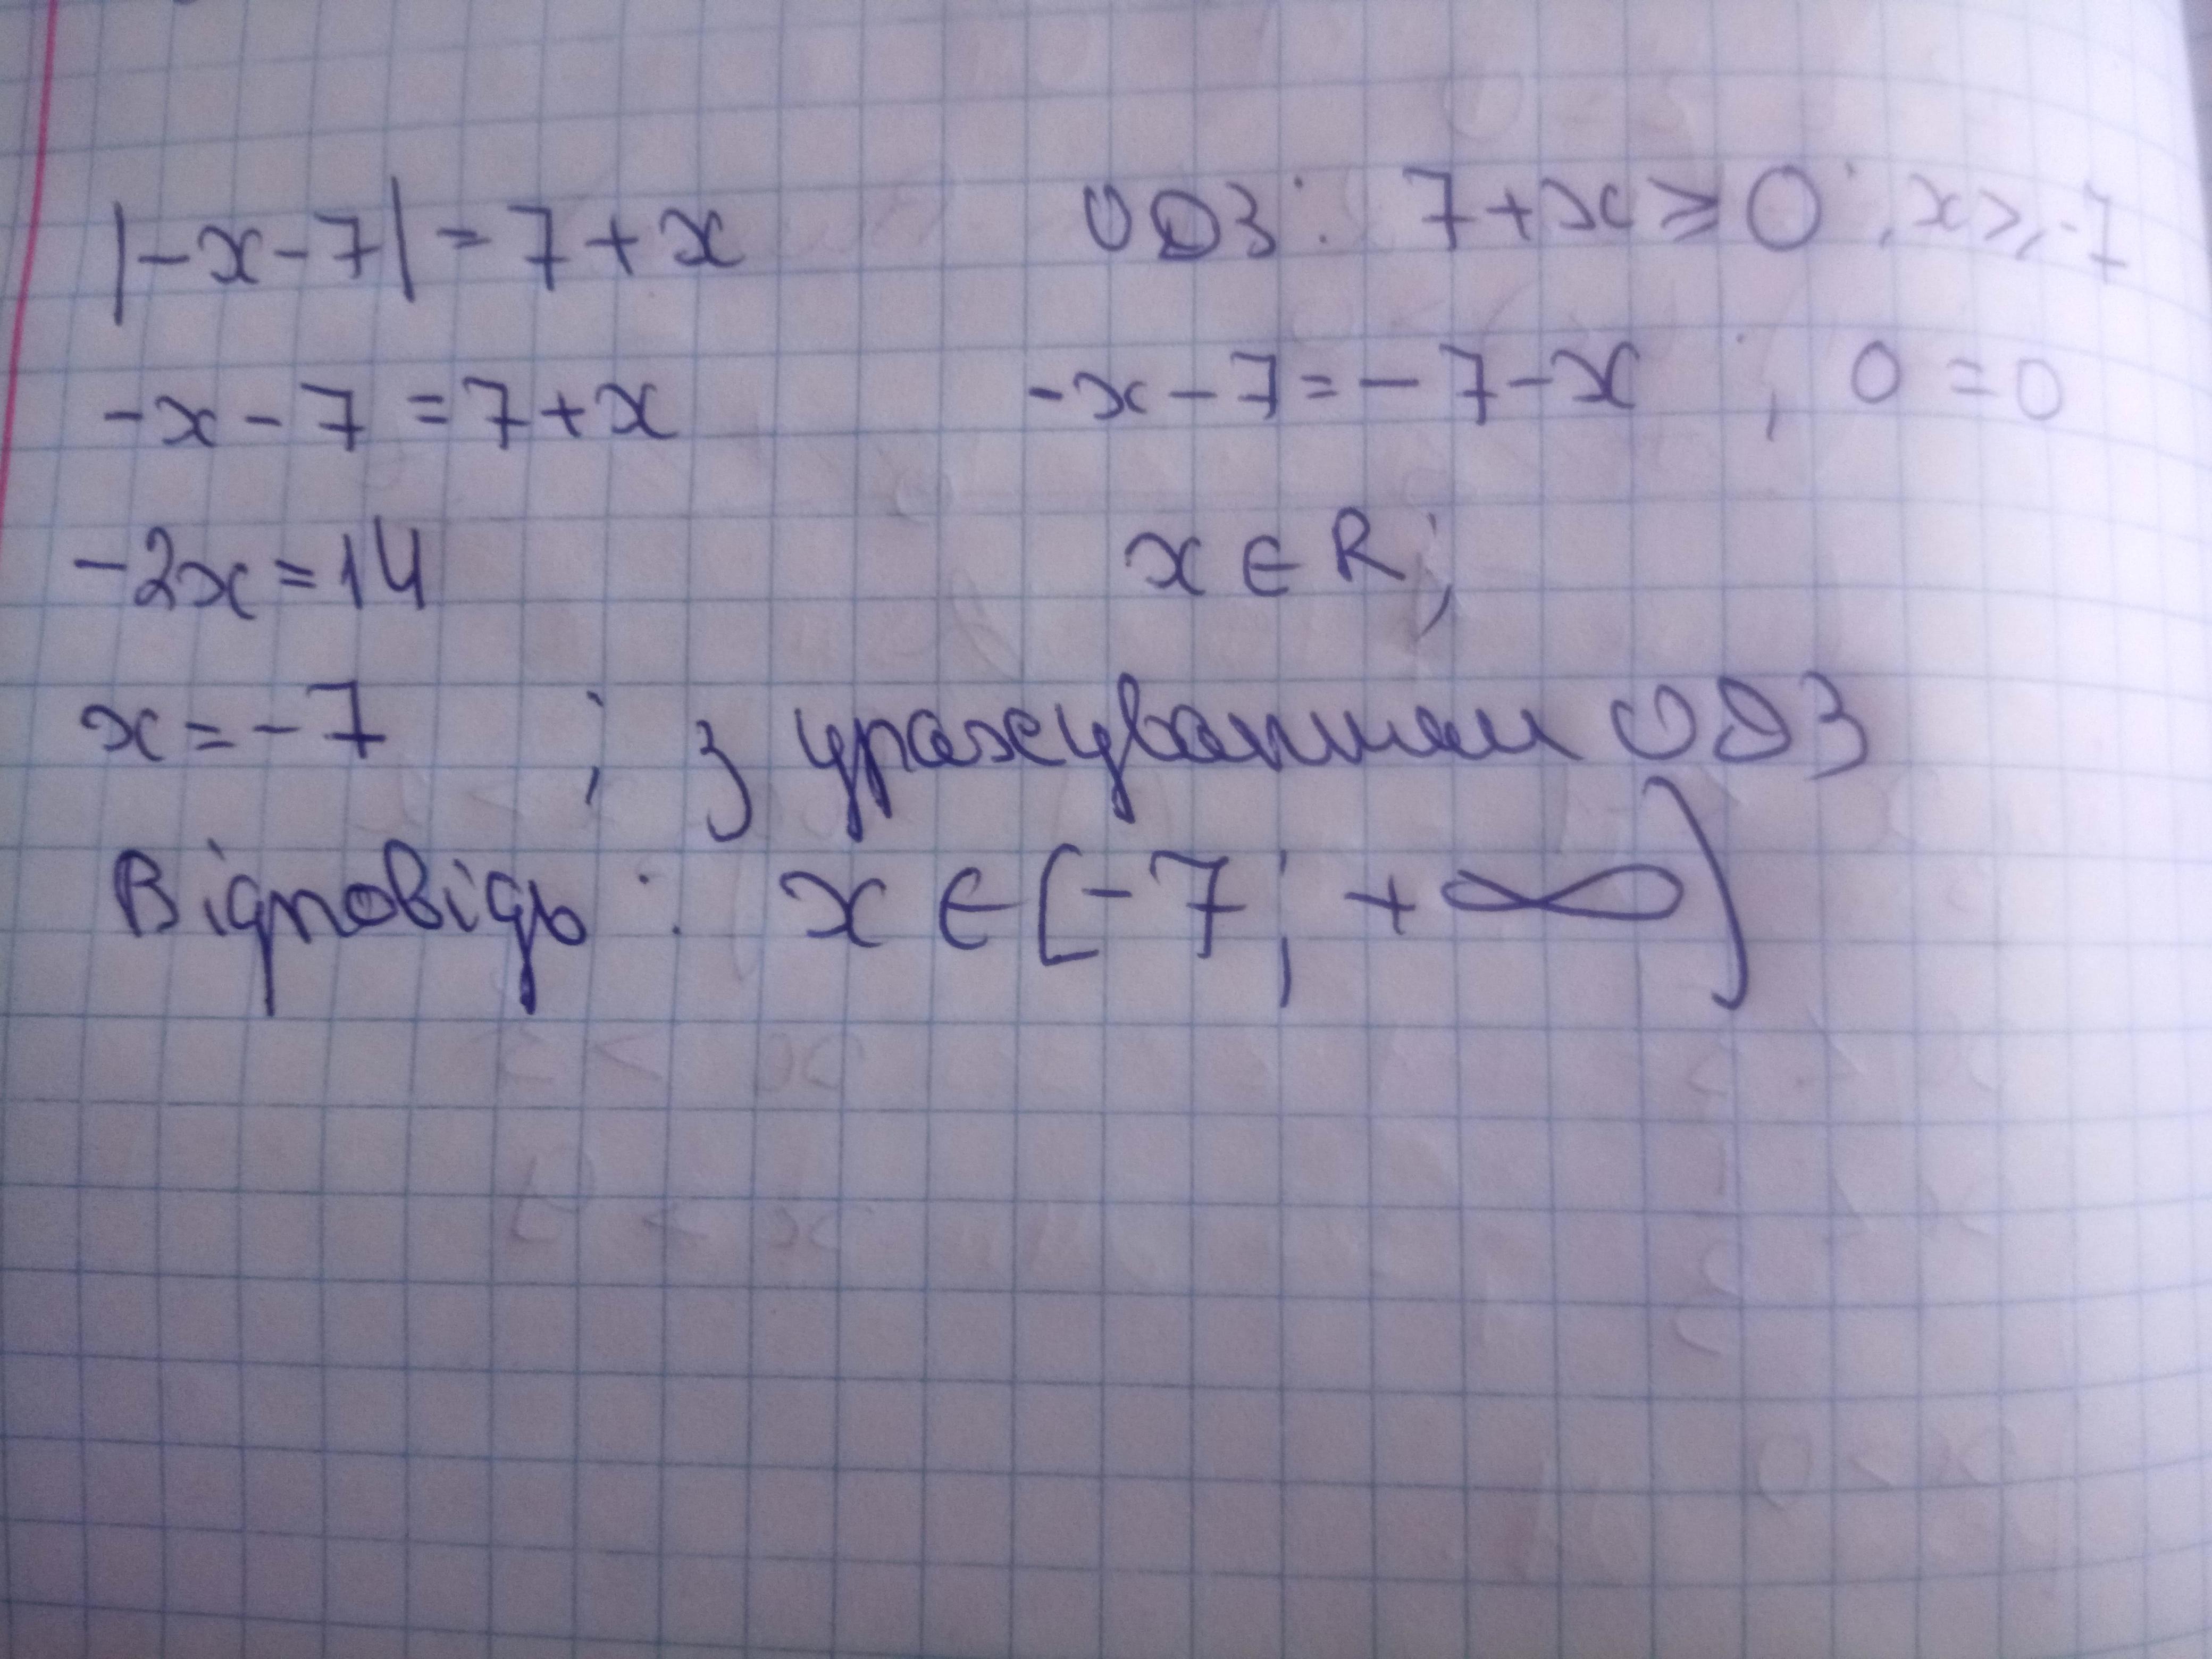 |-x-7| = 7+x ОДЗ: 7+x ⩾ 0; x ⩾ -7
-x-7 = 7+x -x-7 = -7-x ; 0 = 0
-2x = 14 x ∈ R;
x = -7 ; з урахуванням ОДЗ
Відповідь: x ∈ [-7; +∞)